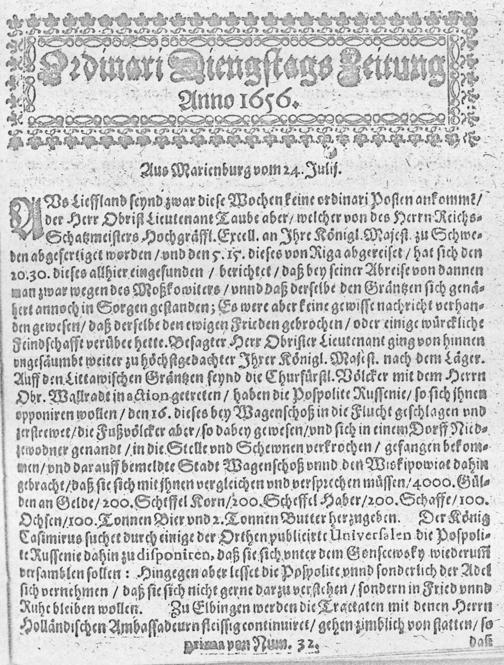 Ordinari Diengstags Zeitung
Anno 1656.
Aus Marienburg vom 24. Julij.
AUs Lieffland seynd zwar diese Wochen keine ordinari Posten ankommē/
der Herr Obrist Lieutenant Taube aber/ welcher von des Herrn Reichs-
Schatzmeisters Hochgräffl. Excell. an Ihre Königl. Majest. zu Schwe-
den abgefertiget worden/ und den 5. 15. dieses von Riga abgereiset/ hat sich den
20. 30. dieses allhier eingefunden/ berichtet/ daß bey seiner Abreise von dannen
man zwar wegen des Moßkowiters/ vnnd daß derselbe den Gräntzen sich genä-
hert annoch in Sorgen gestanden; Es were aber keine gewisse nachricht verhan-
den gewesen/ daß derselbe den ewigen Frieden gebrochen/ oder einige würckliche
Feindschafft verübet hette. Besagter Herr Obrister Lieutenant ging von hinnen
ungesäumbt weiter zu höchstgedachter Ihrer Königl. Majest. nach dem Läger.
Auff den Littawischen Gräntzen seynd die Churfürstl. Völcker mit dem Herrn
Obr. Wallradt in action getreten/ haben die Pospolite Russenie/ so sich ihnen
opponiren wollen/ den 16. dieses bey Wagenschoß in die Flucht geschlagen und
zerstrewet/ die Fußvölcker aber/ so dabey gewesen/ und sich in einem Dorff Nied-
zewodner genandt/ in die Stelle und Schewnen verkrochen/ gefangen bekom-
men/ und darauff bemeldte Stadt Wagenschoß vnnd den Wiskipowiat dahin
gebracht/ daß sie sich mit ihnen vergleichen und versprechen müssen/ 4000. Gül-
den an Gelde/ 200. Scheffel Korn/ 200. Scheffel Haber/ 200. Schaffe/ 100.
Ochsen/ 100. Tonnen Bier und 2. Tonnen Butter herzugeben. Der König
Casimirus suchet durch einige der Orthen publicirte Universalen die Pospoli-
te Russenie dahin zu disponiren, daß sie sich vnter dem Gonsewsky wiederum
versamblen sollen: Hingegen aber lesset die Pospolite vnnd sonderlich der Adel
sich vernehmen/ daß sie sich nicht gerne darzu verstehen/ sondern in Fried vnnd
Ruhe bleiben wollen. Zu Elbingen werden die Tractaten mit denen Herrn
Holländischen Ambassadeurn fleissig continuiret/ gehen zimblich von statten/ so
prima von Num. 32. daß